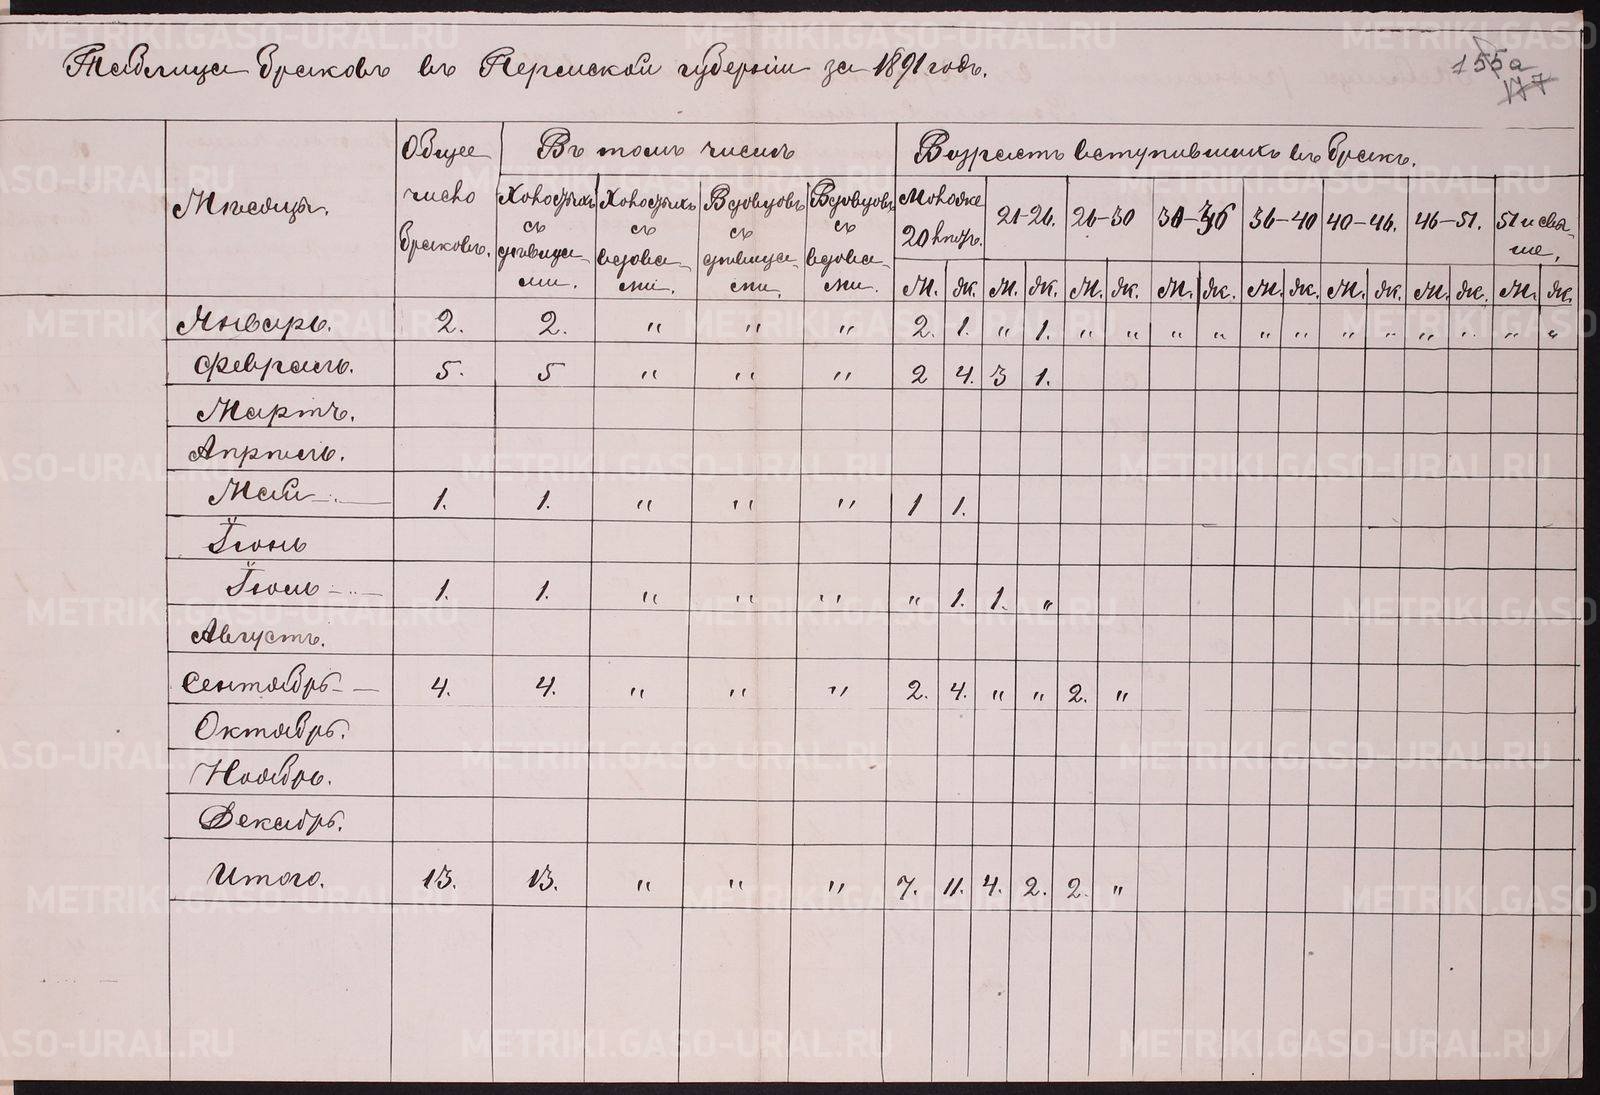 Таблица браковъ въ Пермской губерніи за 1891 годъ.
155а
177
Мѣсяцы.
Общее число браковъ.
Въ томъ числѣ
Возрастъ вступившихъ въ бракъ.
Холостыхъ съ дѣвицами.
Холостыхъ съ вдовами.
Вдовцовъ съ дѣвицами.
Вдовцовъ съ вдовами.
Моложе 20 лѣтъ.
21-26.
26-30
36-40
40-46.
46-51.
51 и свыше.
М. Ж. М. Ж. М. Ж. М. Ж. М. Ж. М. Ж. М. Ж. М. Ж.
Январь. 2. 2. " " " 2. 1. " 1. " " " " " " " " " " " "
Февраль. 5. 5 " " " 2 4. 3 1.
Мартъ.
Апрѣль.
Май 1. 1. " " " 1 1.
Іюнь
Іюль 1. 1. " " " " 1. 1. "
Августъ.
Сентябрь 4. 4. " " " 2. 4. " " 2. "
Октябрь.
Ноябрь.
Декабрь.
Итого. 13. 13. " " " 7. 11. 4. 2. 2. "
METRIKI.GASO-URAL.RU